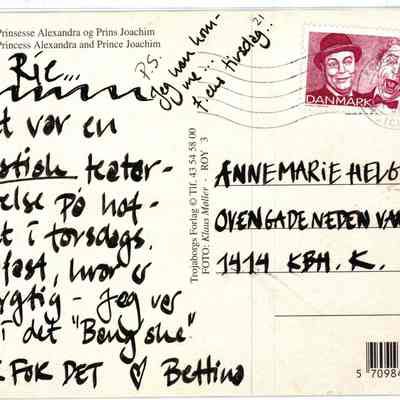 Prinsesse Alexandra og Prins Joachim
Princess Alexandra and Prince Joachim
Rie...
var en
teater-
else på hof-
et i torsdags.
fast, hvor er
Jeg ver
i det "Bang she"
FOR DET ♡ Bettina
P.S.
Jeg kan kom-
me...
tirsdag.. 21
Trojaborgs Forlag © Tlf. 43 54 58 00
FOTO: Klaus Møller - ROY 3
DANMARK
ANNEMARIE HELG
OVENGADENEDEN VAN
1414 KBH. K.
5 70984